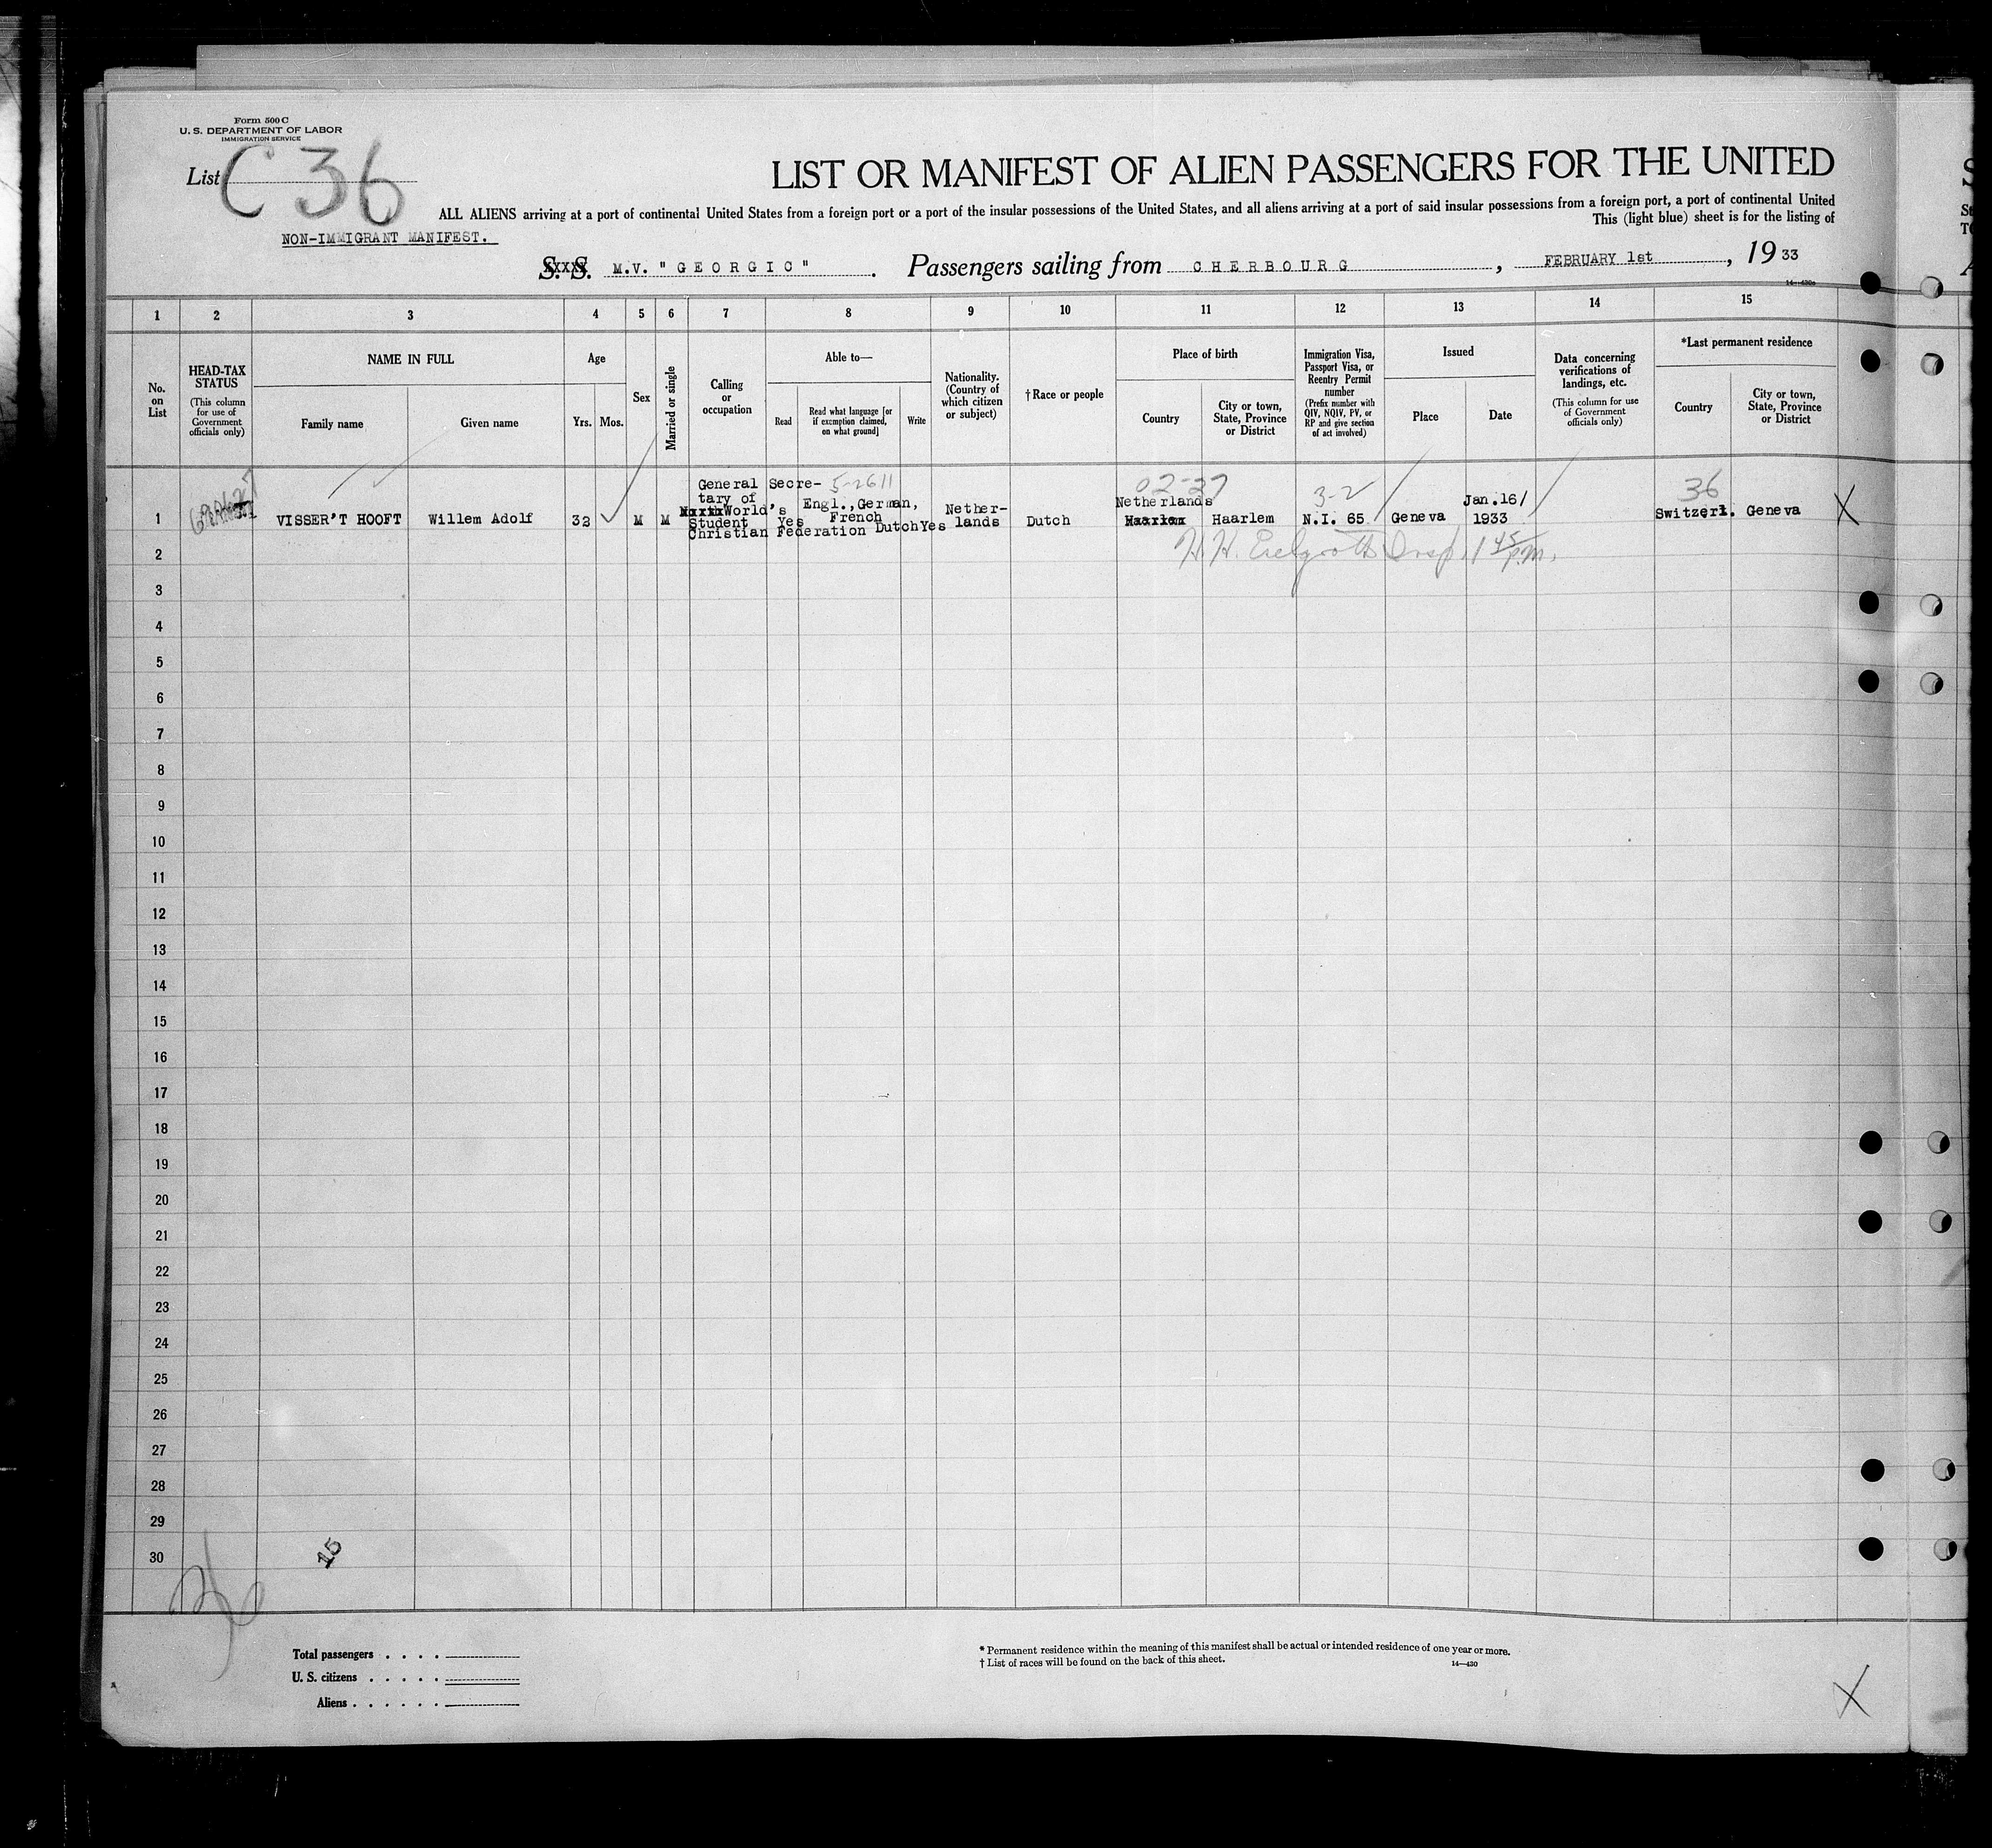 Form 500 C
U. S. DEPARTMENT OF LABOR
IMMIGRATION SERVICE
List C 36
LIST OR MANIFEST OF ALIEN PASSENGERS FOR THE UNITED
ALL ALIENS arriving at a port of continental United States from a foreign port or a port of the insular possessions of the United States, and all aliens arriving at a port of said insular possessions from a foreign port, a port of continental United
This (light blue) sheet is for the listing of
NON-IMMIGRANT MANIFEST.
S. S. M.V. "GEORGIC". Passengers sailing from CHERBOURG, FEBRUARY 1st, 19 33
14—430a
1 2 3 4 5 6 7 8 9 10 11 12 13 14 15
No. on List
HEAD-TAX STATUS
(This column for use of Government officials only)
NAME IN FULL
Family name
Given name
Age
Yrs.
Mos.
Sex
Married or single
Calling or occupation
Able to—
Read
Read what language [or if exemption claimed, on what ground]
Write
Nationality. (Country of which citizen or subject)
†Race or people
Place of birth
Country
City or town, State, Province or District
Immigration Visa, Passport Visa, or Reentry Permit number
(Prefix number with QIV, NQIV, PV, or RP and give section of act involved)
Issued
Place
Date
Data concerning verifications of landings, etc.
(This column for use of Government officials only)
*Last permanent residence
Country
City or town, State, Province or District
1
VISSER'T HOOFT
Willem Adolf
32
M
M
General Secre-
tary of
World's
Student
Christian Federation
Yes
5-2611
Engl., German,
French
Dutch
Yes
Nether-
lands
Dutch
02-27
Netherlands
Haarlem
Haarlem
3-2
N.I. 65
Geneva
Jan.16/
1933
36
Switzerl.
Geneva
X
H. H. Insp. 1 45/P.M.
2
3
4
5
6
7
8
9
10
11
12
13
14
15
16
17
18
19
20
21
22
23
24
25
26
27
28
29
30
15
36
Total passengers . . . .
U. S. citizens . . . . .
Aliens . . . . . .
* Permanent residence within the meaning of this manifest shall be actual or intended residence of one year or more.
† List of races will be found on the back of this sheet.
14—430
X